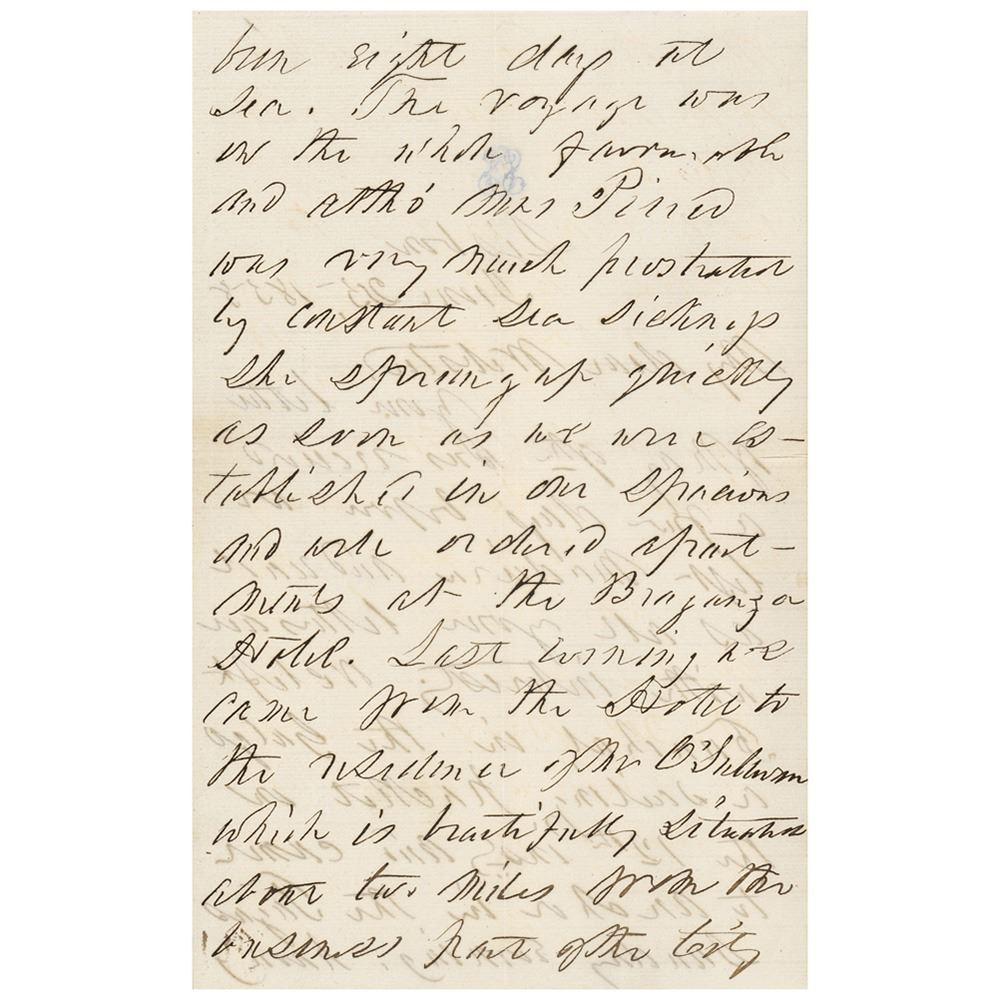 been eight days at
sea. The voyage was
on the whole favourable
and altho' Mrs Pierce
was very much prostrated
by constant sea sickness
she sprung up quickly
as soon as we were es-
tablished in our spacious
and well ordered apart-
ments at the Braganza
Hotel. Last evening we
came from the Hotel to
the residence of Mr O'Sullivan
which is beautifully situated
about two miles from the
business part of the City